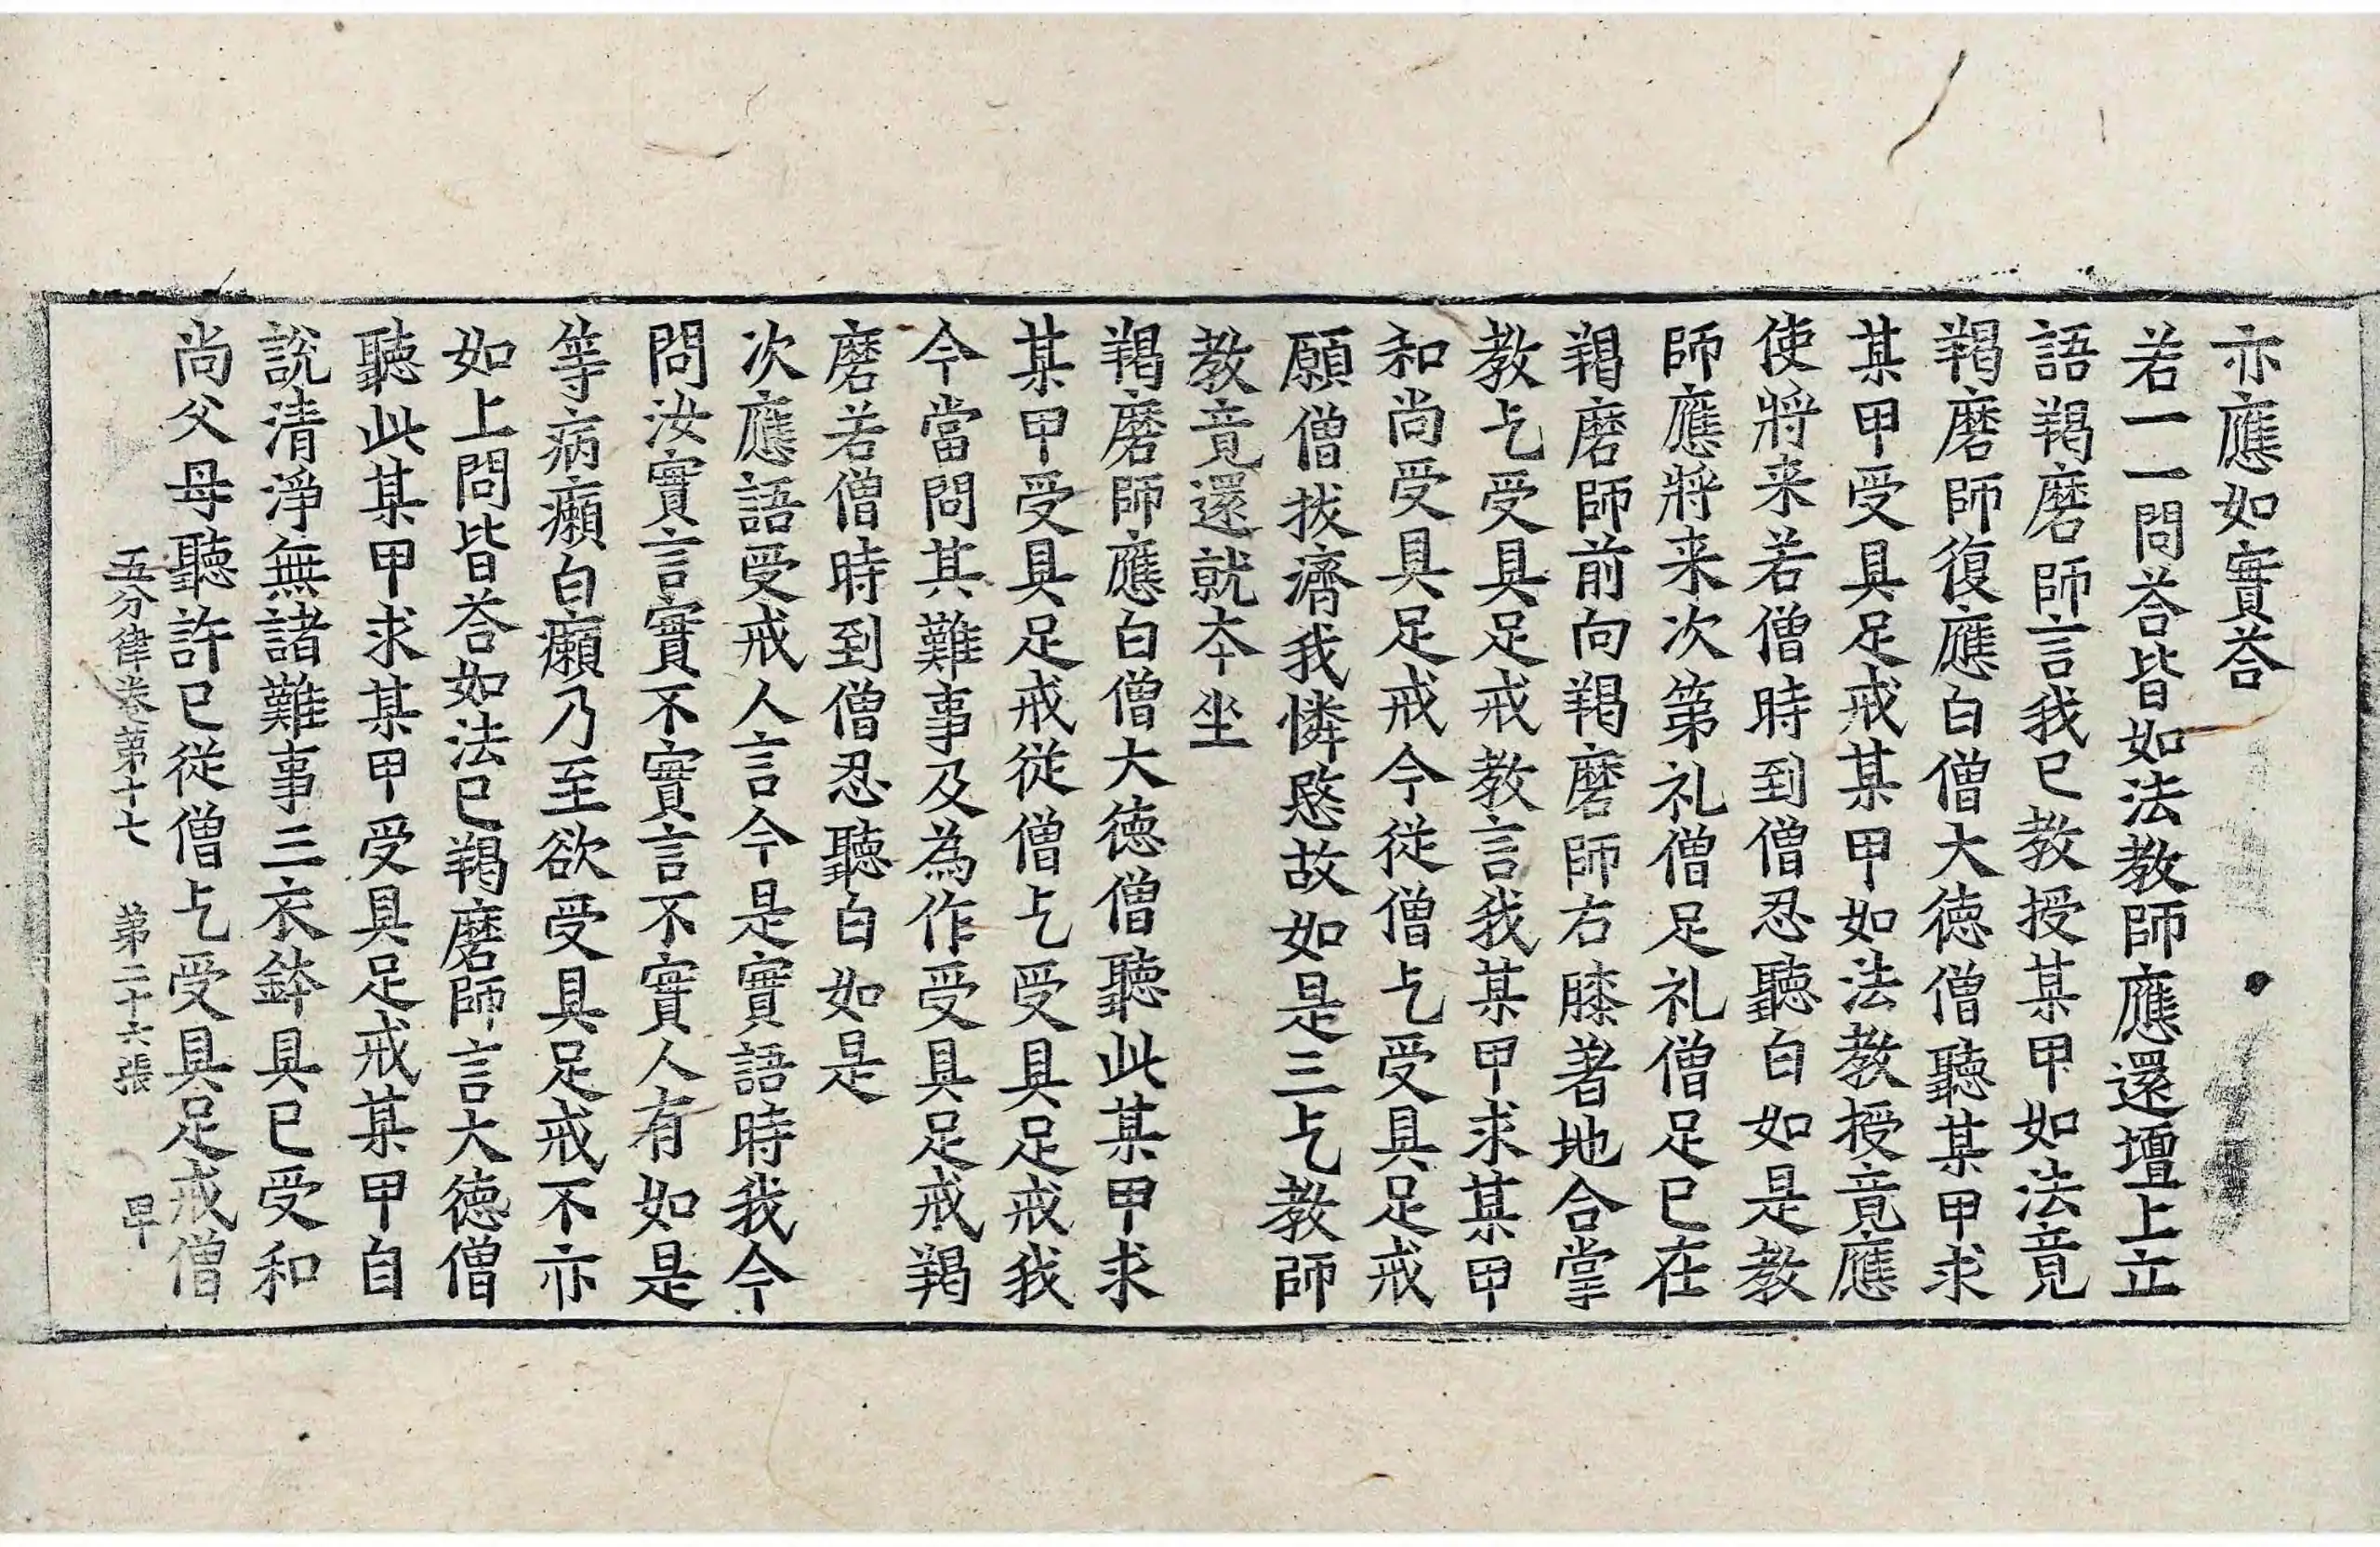 亦應如實荅
若一一問荅皆如法教師應還壇上立
語羯磨師言我已教授某甲如法竟
羯磨師復應白僧大德僧聽某甲求
某甲受具足戒某甲如法教授竟應
使將来若僧時到僧忍聽白如是教
師應將来次第礼僧足礼僧足已在
羯磨師前向羯磨師右膝著地合掌
教乞受具足戒教言我某甲求某甲
和尚受具足戒今從僧乞受具足戒
願僧拔濟我憐愍故如是三乞教師
教竟還就本坐
羯磨師應白僧大德僧聽此某甲求
某甲受具足戒從僧乞受具足戒我
今當問其難事及為作受具足戒羯
磨若僧時到僧忍聽白如是
次應語受戒人言今是實語時我今
問汝實言實不實言不實人有如是
等病癩白癩乃至欲受具足戒不亦
如上問皆荅如法已羯磨師言大德僧
聽此某甲求某甲受具足戒某甲自
說清淨無諸難事三衣鉢具已受和
尚父母聽許已從僧乞受具足戒僧
五分律卷第十七 第二十六張